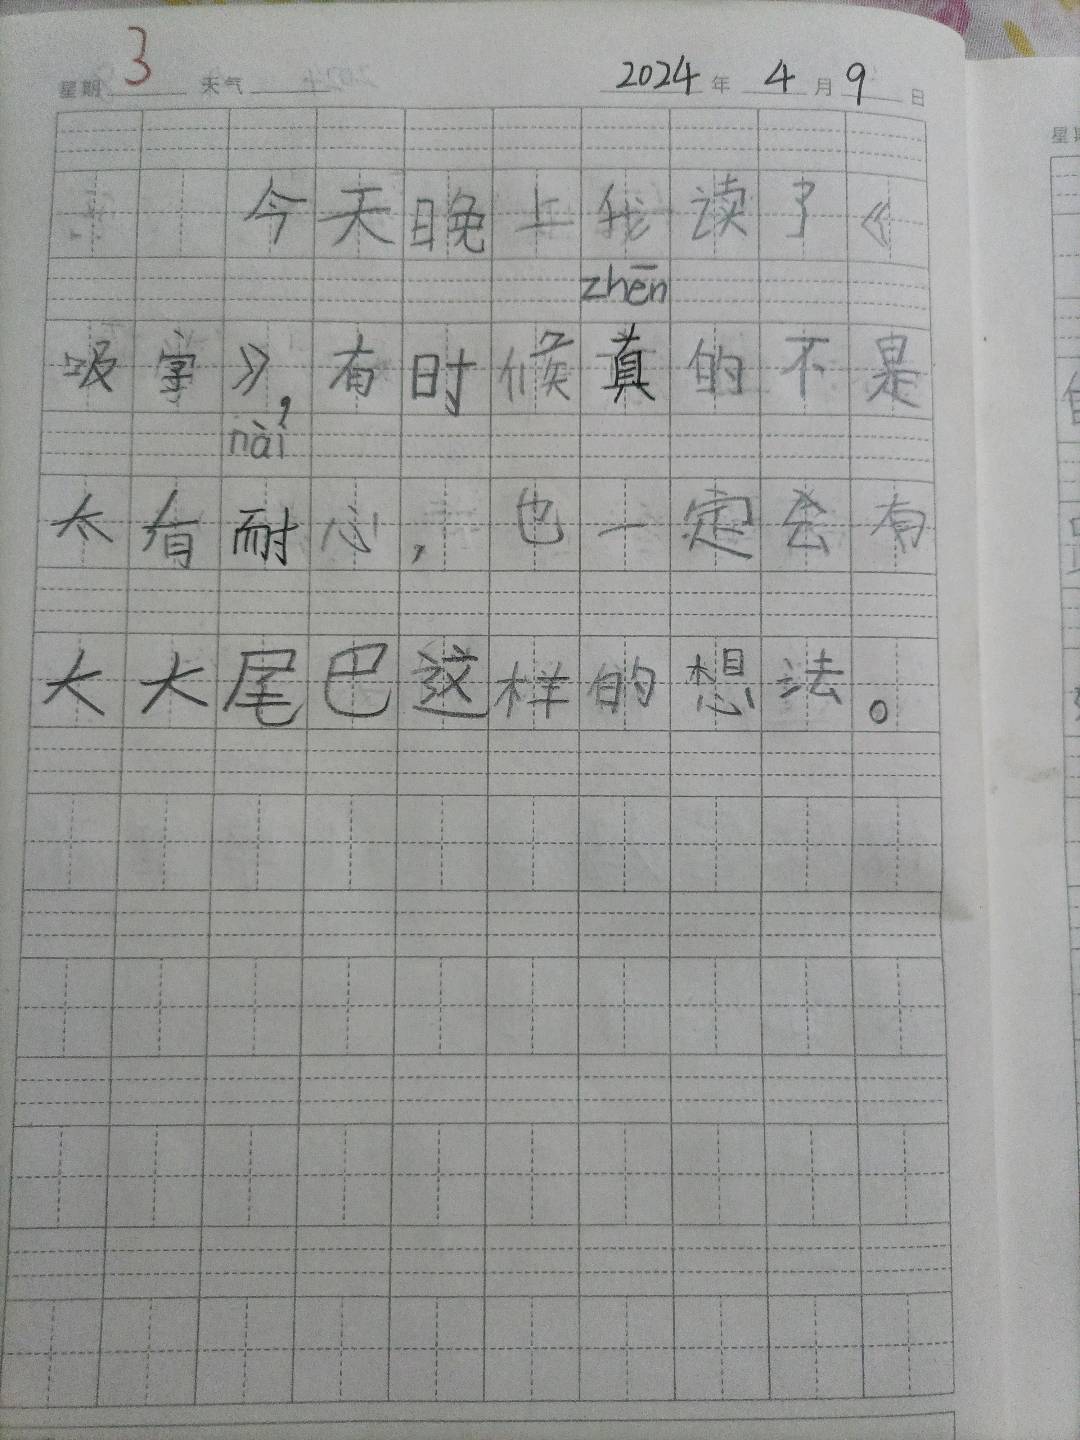 星期 3 天气 2024 年 4 月 9 日
今天晚上我读了《
zhēn
吸字》，有时候真的不是
nài
太有耐心，也一定会有
大大尾巴这样的想法。
星期